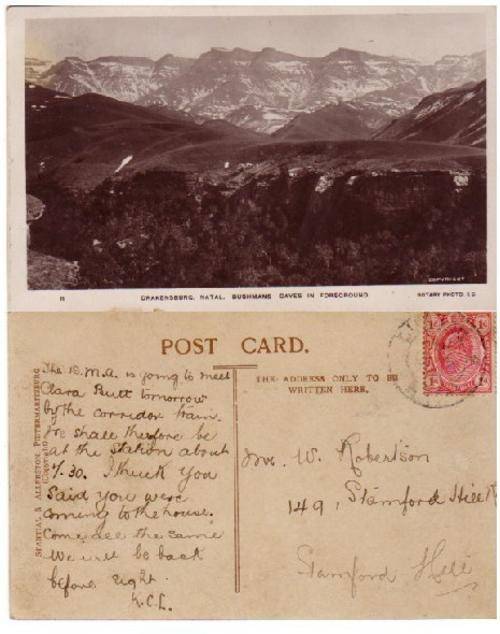 COPYRIGHT
R
DRAKENSBURG, NATAL. BUSHMANS CAVES IN FOREGROUND
ROTARY PHOTO. E.C
POST CARD.
THE ADDRESS ONLY TO BE
WRITTEN HERE.
SHANTIAL & ALLERSTON, PIETERMARITZBURG
(Copyright)
1d
1d
The is going to meet
Clara Butt tomorrow
by the corridor train.
We shall therefore be
at the Station about
7.30. I think you
said you were
coming to the house.
Come all the same
We will be back
before eight.
K.C.L.
W. Robertson
149, Stamford Hill R
Stamford Hill